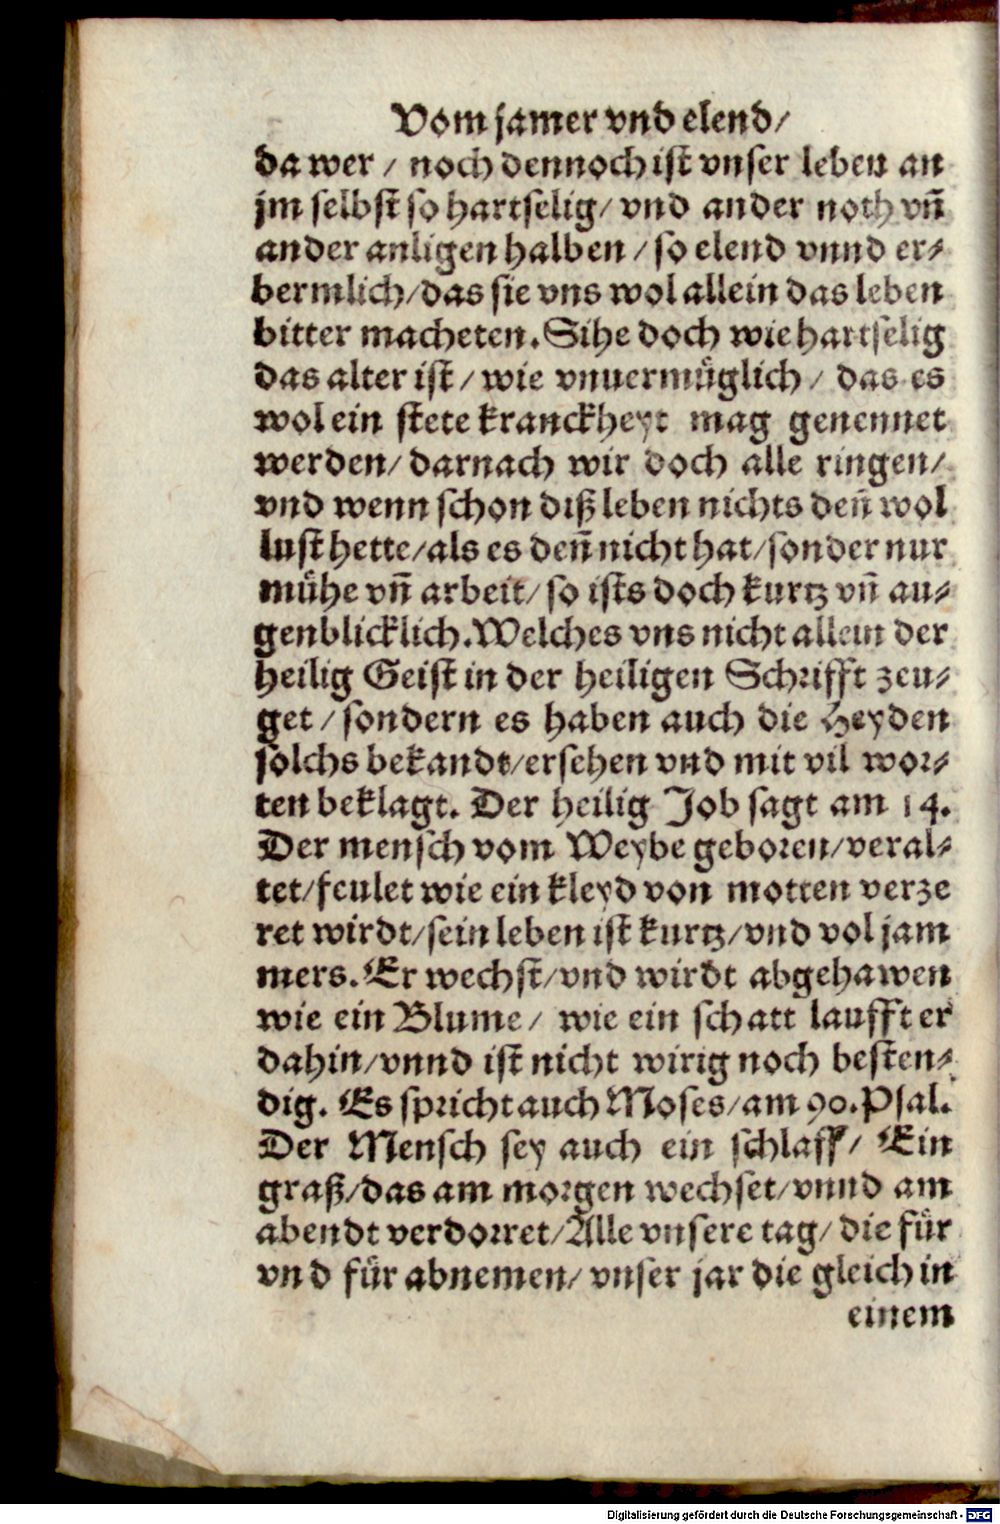 Vom jamer vnd elend/
da wer / noch dennoch ist vnser leben an
jm selbst so hartselig/ vnd ander noth vñ
ander anligen halben / so elend vnnd er-
bermlich/das sie vns wol allein das leben
bitter macheten. Sihe doch wie hartselig
das alter ist / wie vnuermüglich / das es
wol ein stete kranckheyt mag genennet
werden/ darnach wir doch alle ringen/
vnd wenn schon diß leben nichts deñ wol
lust hette/als es deñ nicht hat/sonder nur
mühe vñ arbeit/ so ists doch kurtz vñ au-
genblicklich. Welches vns nicht allein der
heilig Geist in der heiligen Schrifft zeu-
get / sondern es haben auch die Heyden
solchs bekandt/ersehen vnd mit vil wor-
ten beklagt. Der heilig Job sagt am 14.
Der mensch vom Weybe geboren/veral-
tet/feulet wie ein kleyd von motten verze
ret wirdt/sein leben ist kurtz/vnd vol jam
mers. Er wechst/vnd wirdt abgehawen
wie ein Blume / wie ein schatt laufft er
dahin/vnnd ist nicht wirig noch besten-
dig. Es spricht auch Moses/am 90. Psal.
Der Mensch sey auch ein schlaff/ Ein
graß/das am morgen wechset/vnnd am
abendt verdorret/Alle vnsere tag/ die für
vnd für abnemen/ vnser jar die gleich in
einem
Digitalisierung gefördert durch die Deutsche Forschungsgemeinschaft - DFG